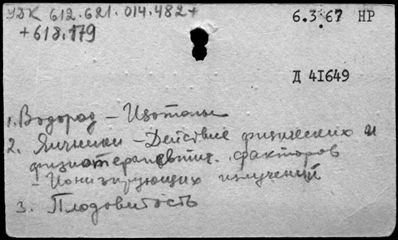 УДК 612.621.014.482+
+618.179
6.3.67 НР
Д 41649
1. Водород – Изотопы
2. Яичники – Действие физических и
физиотерапевтич. факторов
– Ионизирующих излучений
3. Плодовитость